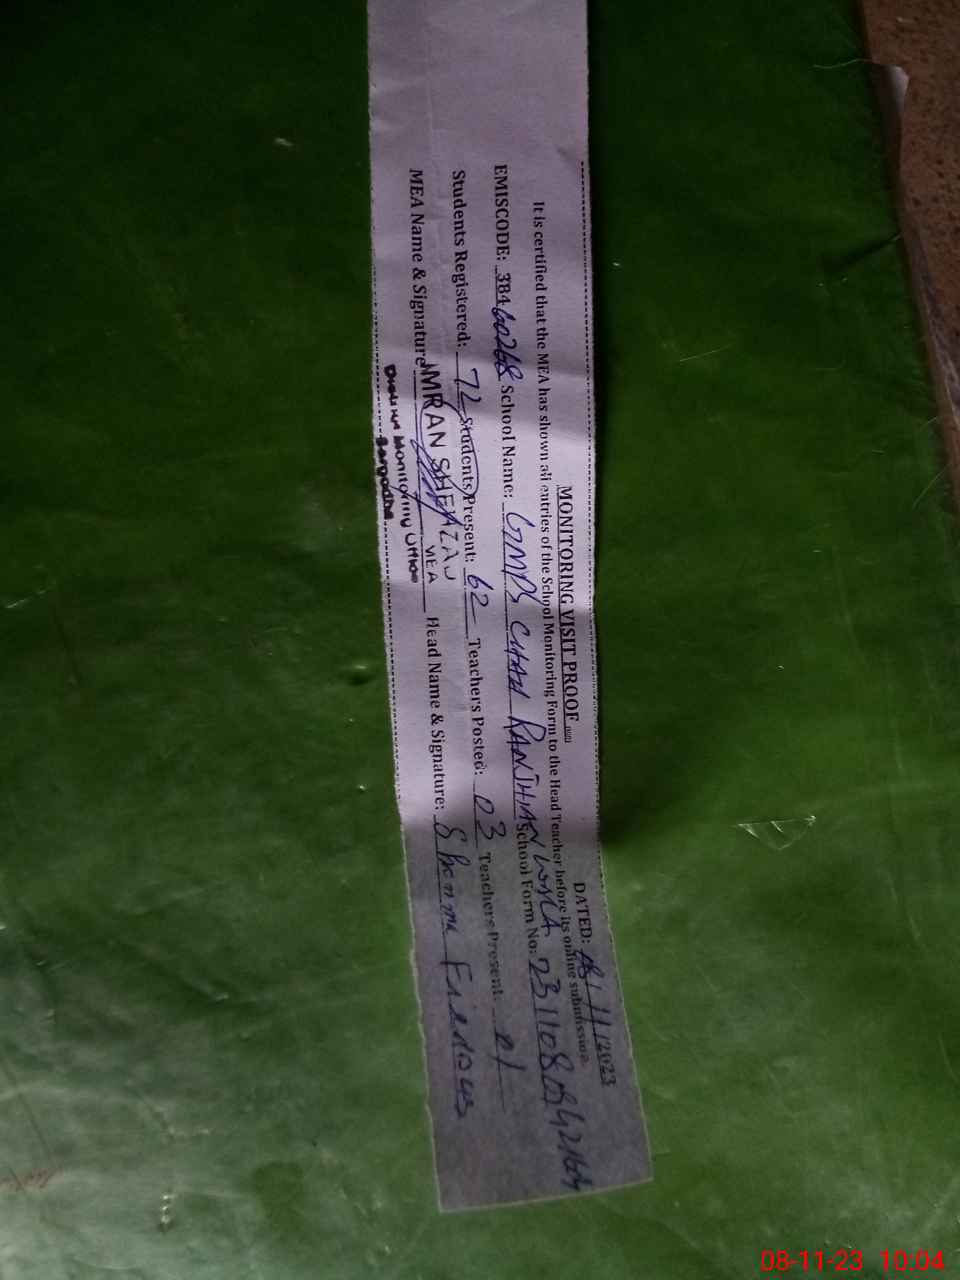 MONITORING VISIT PROOF
DATED: 08/11/2023
It is certified that the MEA has shown all entries of the School Monitoring Form to the Head Teacher before its online submission.
EMISCODE: 38460268 School Name: GMPS CHAH RANJHIAN WALA School Form No: 231108
Students Registered: 72 Students Present: 62 Teachers Posted: 03 Teachers Present: 01
MEA Name & Signature: IMRAN SHEHZAD MEA Head Name & Signature: Firdous
District Monitoring Office
Sargodha
08-11-23 10:04